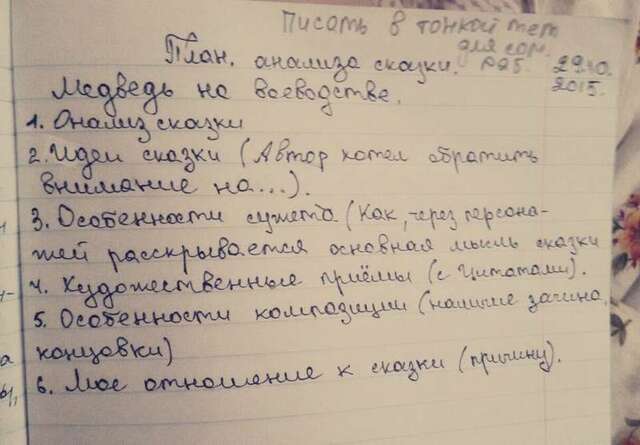 Писать в тонкой тет
для сам. раб. 29.10.
План. анализа сказки. 2015.
Медведь на воеводстве.
1. Онализ сказки
2. Идеи сказки (Автор хотел обратить
внимание на...).
3. Особенности сужета (Как, через персона-
жей расскрывается основная мысль сказки
4. Художественные приёмы (с цитатами).
5. Особенности композиции (налицие зачина,
концовки)
6. Мое отношение к сказки (причину).